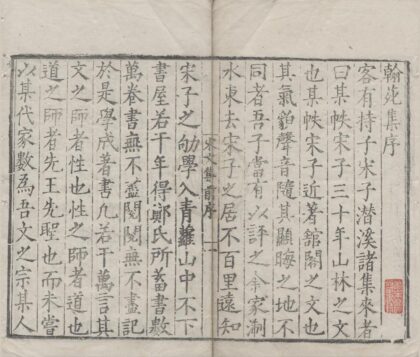 翰苑集序
客有持子宋子潛溪諸集來者
曰某帙宋子三十年山林之文
也某帙宋子近著舘閣之文也
其氣貌聲音隨其顯晦之地不
同者吾子當有以評之余家浙
水東去宋子之居不百里遠知
宋文集前序
一
宋子之劬學入青蘿山中不下
書屋若干年得鄭氏所畜書數
萬卷書無不盡閱閱無不盡記
於是學成著書凡若干萬言其
文之師者性也性之師者道也
道之師者先王先聖也而未嘗
以某代家數爲吾文之宗某人